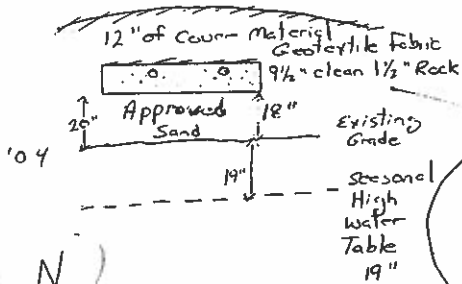 12" of Cover Material
Geotextile Fabric
9½" clean 1½" Rock
Approved
Sand
20"
18"
Existing
Grade
'04
19"
Seasonal
High
Water
Table
19"
N